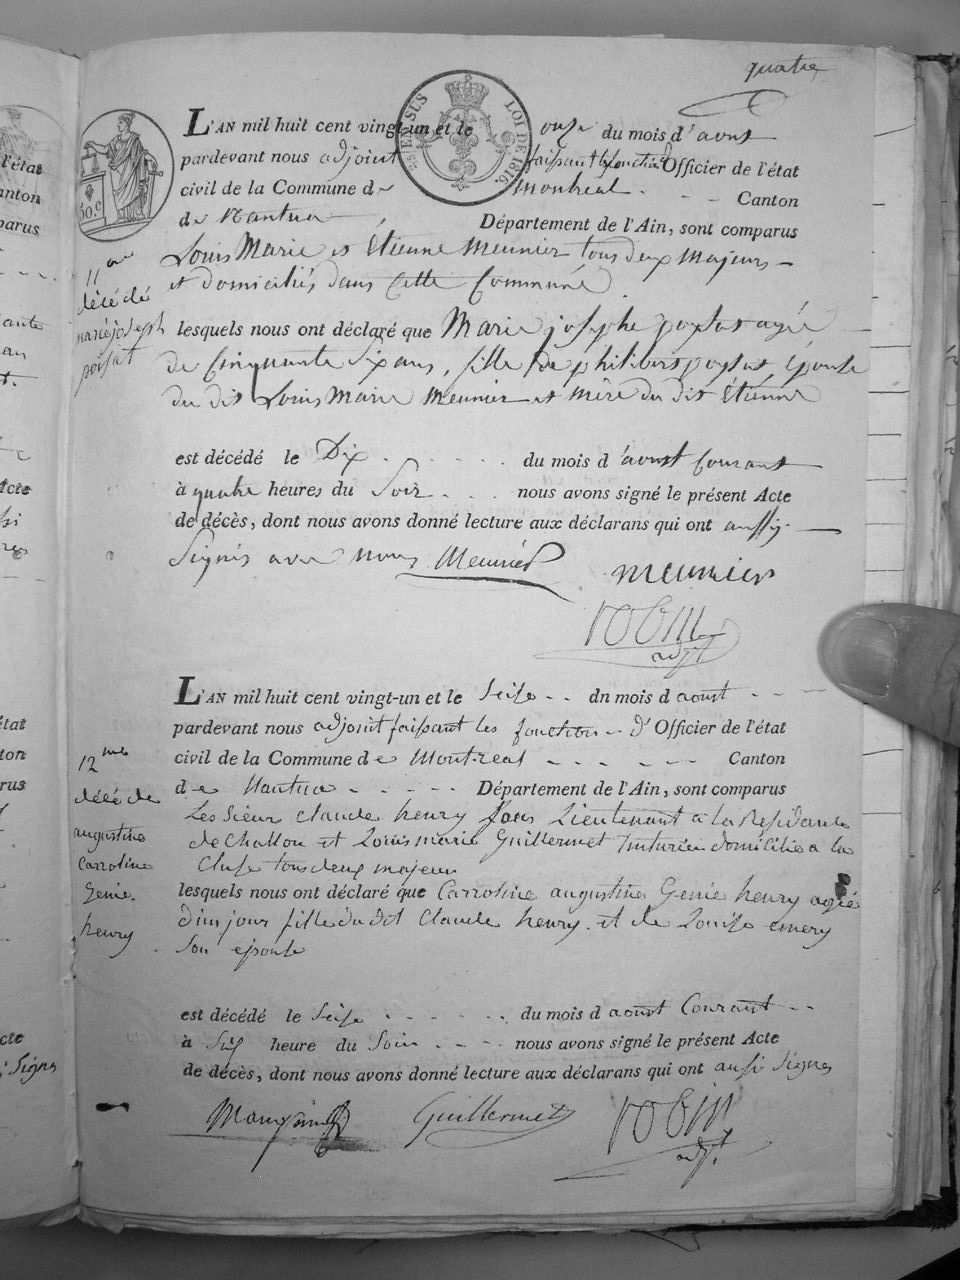 quatre
L'AN mil huit cent vingt-un et le onse du mois d'aoust
pardevant nous adjoint faissant les fonctions Officier de l'état
civil de la Commune de Montreal Canton
de Nantua Département de l'Ain, sont comparus
Louis Marie et Étienne Meunier tous deux majeurs
et domiciliés dans Cette Commune
lesquels nous ont déclaré que Marie josephe poysat agée
de Cinquante Six ans, fille de philibert poysat, Épouse
du dit Louis Marie Meunier et mère du dit Étienne
est décédé le Dix du mois d'aoust Courant
à quatre heures du Soir nous avons signé le présent Acte
de décès, dont nous avons donné lecture aux déclarans qui ont aussy
Signés avec nous Meunier meunier
robin
adjt
11me
décédé
marie joseph
poisat
50 c
LOI DE 1816
EN SUS
L'AN mil huit cent vingt-un et le Seise dn mois d aoust
pardevant nous adjoint faissant les fonction d'Officier de l'état
civil de la Commune de Montreal Canton
de Nantua Département de l'Ain, sont comparus
Les Sieur Claude henry Lieutenant a la
de Challon et Louis marie Guillermet domicilié a la
Cluse tous deux majeur
lesquels nous ont déclaré que Carroline augustine Genie henry agée
d'un jour fille du dit Claude henry et de Louise emery
Son epouse
est décédé le Seise du mois d aoust Courant
à Six heure du Soir nous avons signé le présent Acte
de décès, dont nous avons donné lecture aux déclarans qui ont ausi Signes
Guillermet robin
adjt
12me
décédé
augustine
Carroline
Genie
henry